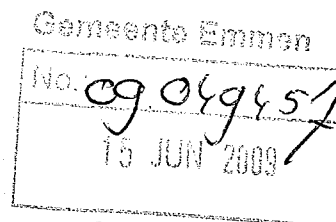 Gemeente Emmen
No. 09 049457
15 JUN 2009